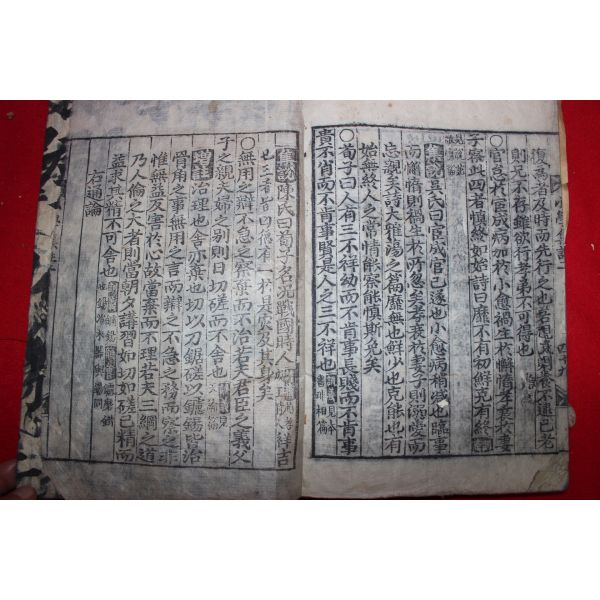 則兄不存雖欲行孝弟不可得也
○官怠於宦成病加於小愈禍生於懈惰孝衰於妻
子察此四者愼終如始詩曰靡不有初鮮克有終
吳氏曰宦成官已遂也小愈病稍
而懈惰則禍生於所忽矣孝者衰於妻子則溺愛而
忘親矣詩大雅蕩之篇靡無也鮮少也克能也有
始無終人之常情能察能愼斯免矣
○荀子曰人有三不祥幼而不肯事長賤而不肯事
貴不肖而不肯事賢是人之三不祥也
集說陳氏曰荀子名況戰國時人
祥吉
也三者皆曰不祥有一於是災及其身矣
○無用之辯不急之察棄而不治若夫君臣之義父
子之親夫婦之別則日切磋而不舍也
增註治理也舍亦棄也切以刀鋸磋以鑢鐋皆治
骨角之事無用之言而辯之不急之務而察之非
惟無益反害於心故當棄而不理若夫三綱之道
乃人倫之大者則當朝夕講習如切如磋已精而
益求其精不可舍也
右通論